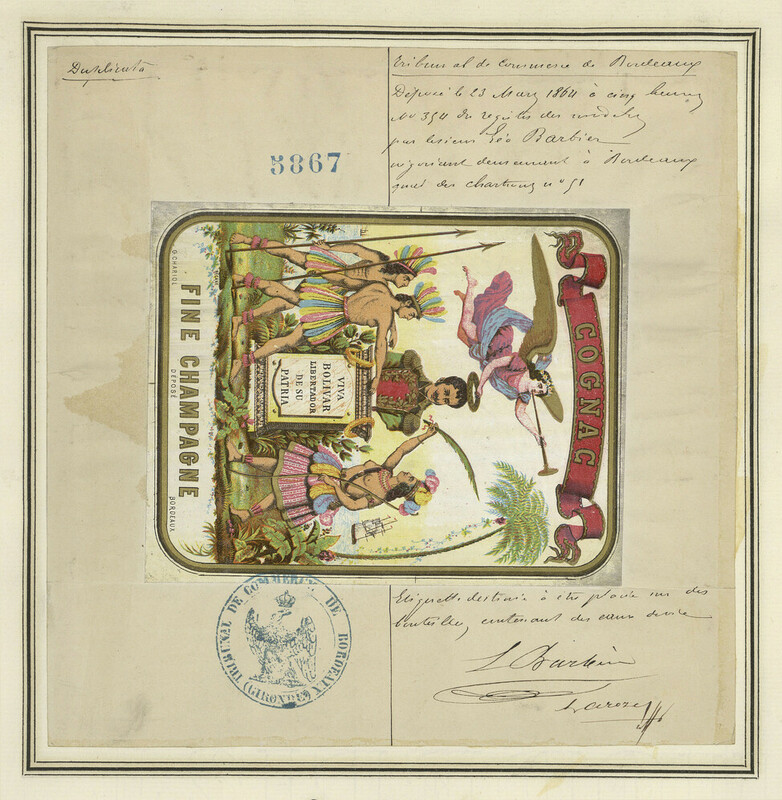 Duplicata
5867
Tribunal de Commerce de Bordeaux
Déposé le 23 Mars 1864 à cinq heures
No 354 du registre des
par le sieur Léo Barbier
négociant demeurant à Bordeaux
quai des Chartrons no 51
COGNAC
VIVA
BOLIVAR
LIBERTADOR
DE SU
PATRIA
FINE CHAMPAGNE
G. CHARIOL
DÉPOSÉ
BORDEAUX
Etiquette destinée à être placée sur des
bouteilles, contenant des eaux de vie
L Barbier
TRIBUNAL DE COMMERCE DE BORDEAUX
(GIRONDE)